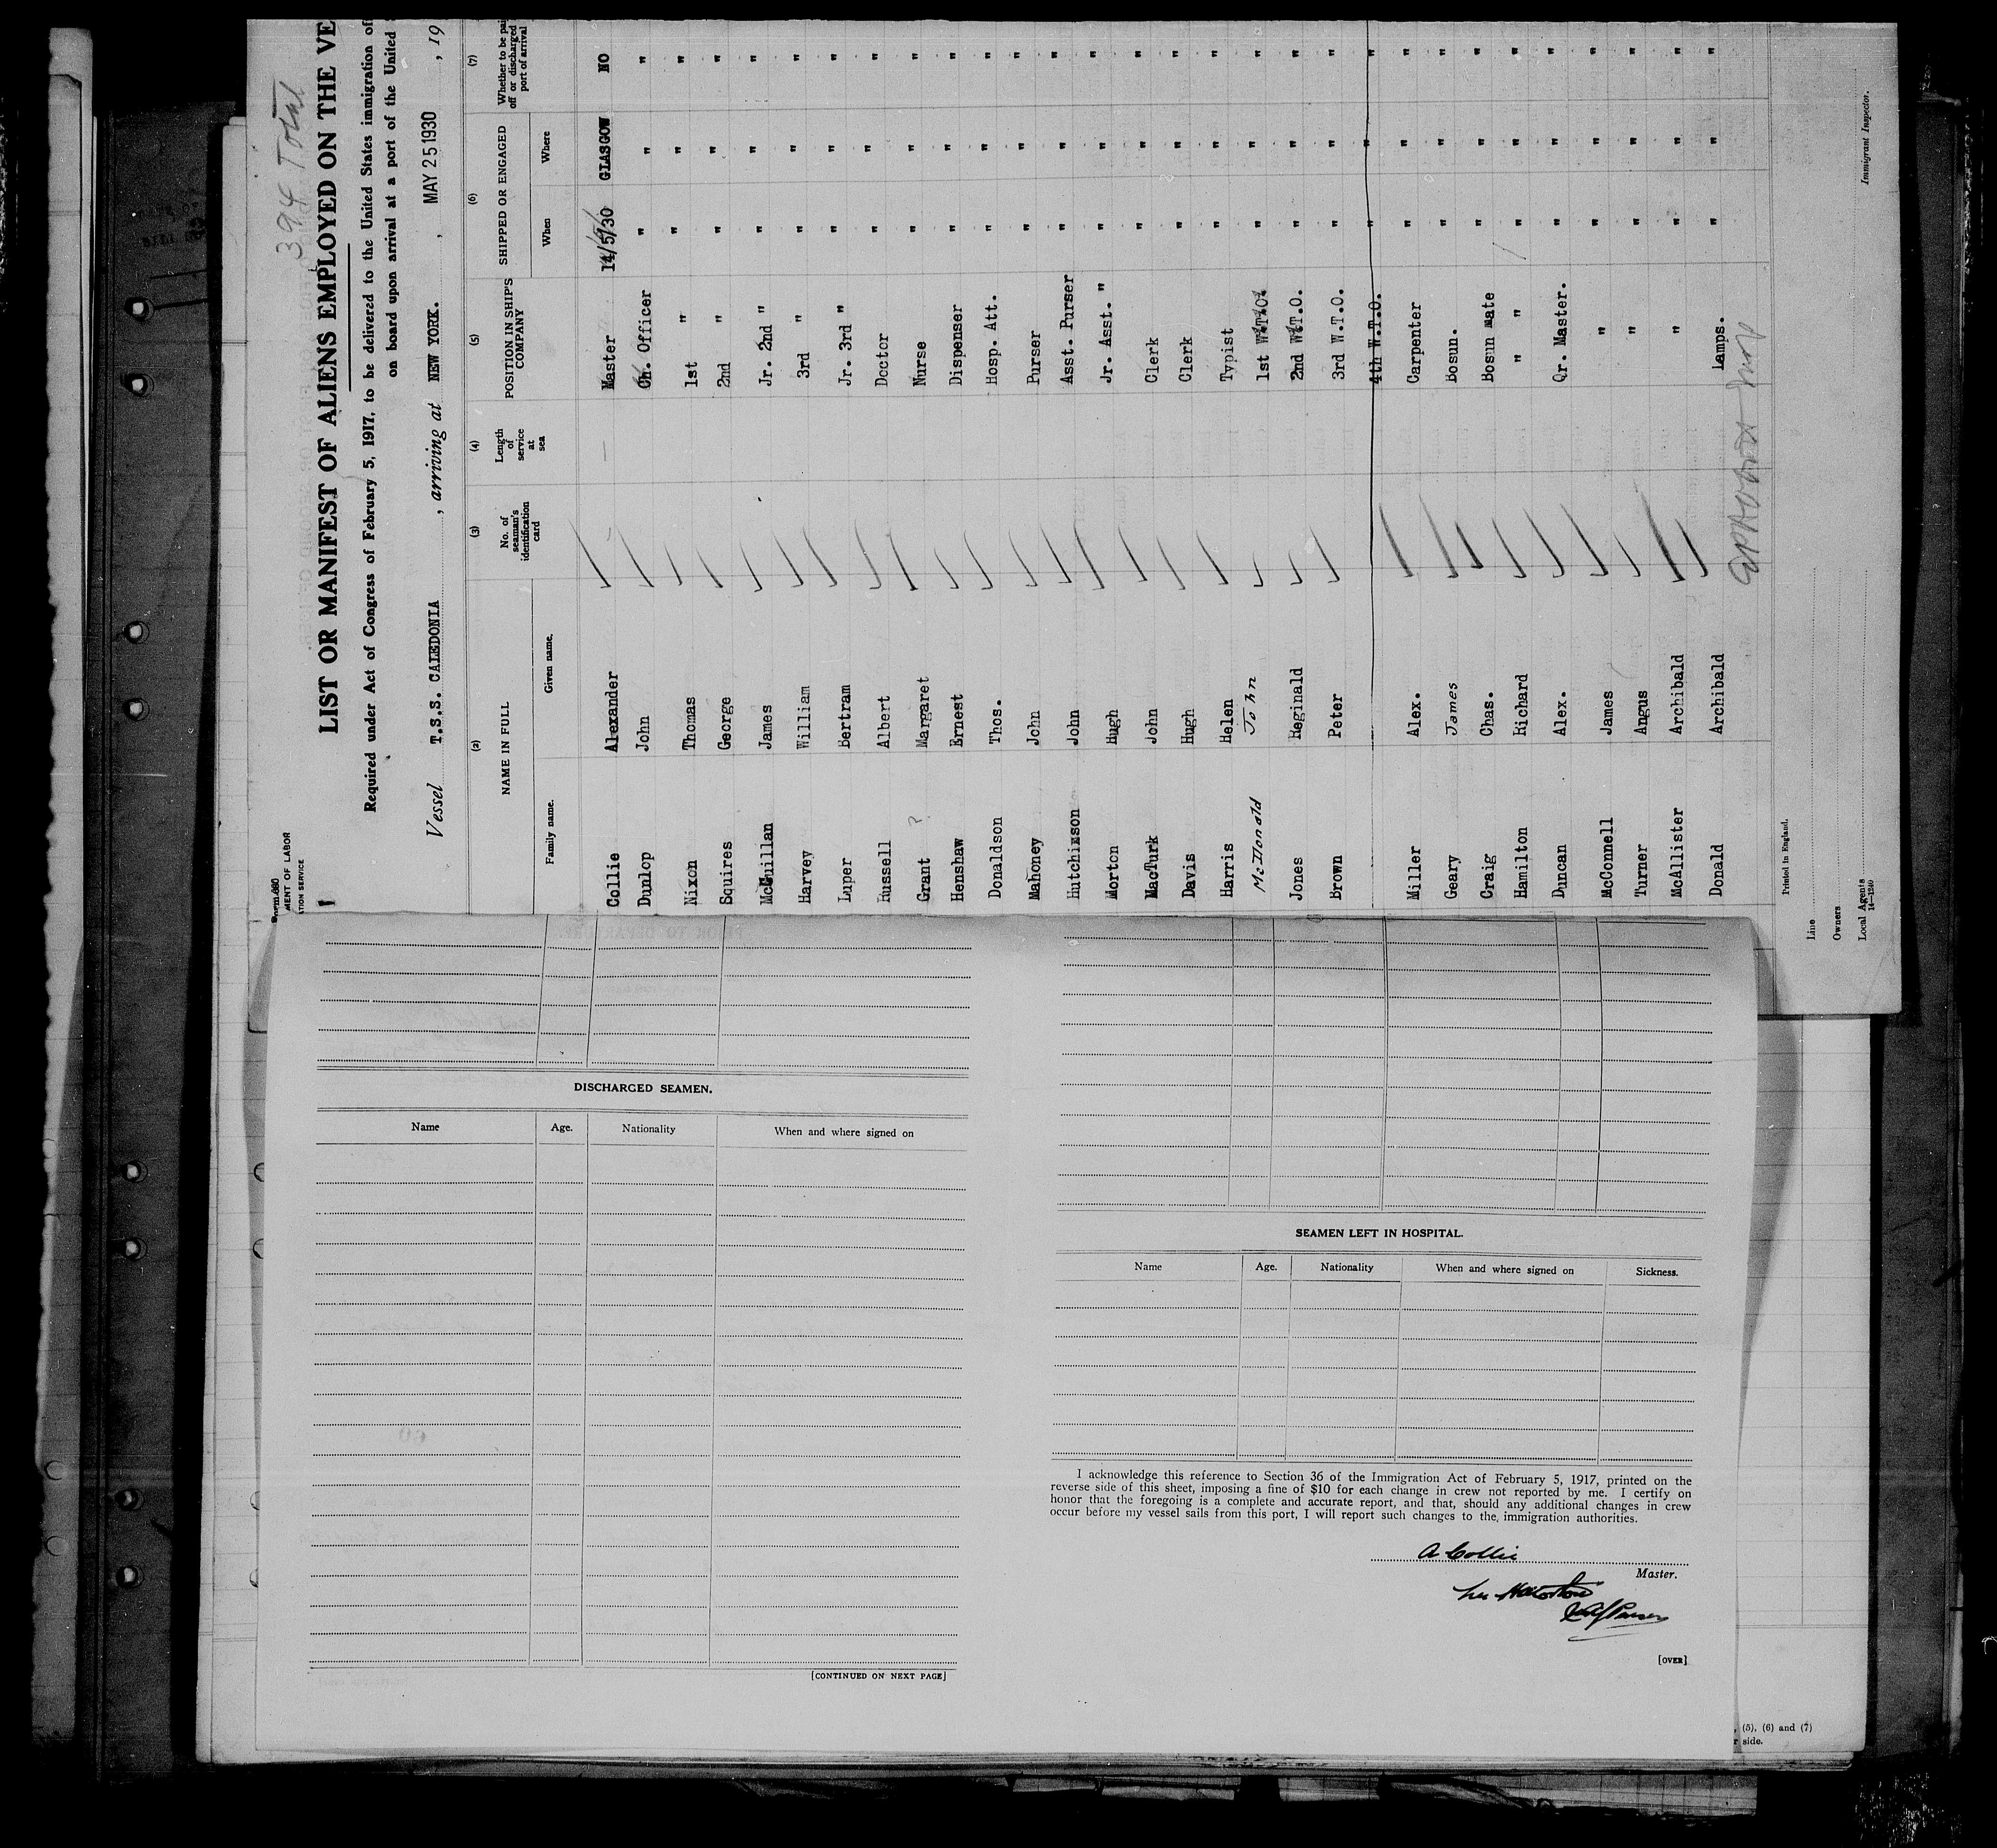 394 Total
Form 680
MENT OF LABOR
TION SERVICE
LIST OR MANIFEST OF ALIENS EMPLOYED ON THE VE
Required under Act of Congress of February 5, 1917, to be delivered to the United States immigration of
on board upon arrival at a port of the United
Vessel T.S.S. CALEDONIA, arriving at NEW YORK. , MAY 25 1930 , 19
(2) (3) (4) (5) (6) (7)
NAME IN FULL No. of seaman's identification card Length of service at sea POSITION IN SHIP'S COMPANY SHIPPED OR ENGAGED Whether to be pai off or discharged port of arrival
Family name. Given name. When Where
Collie Alexander Master 14/5/30 GLASGOW NO
Dunlop John Ch. Officer " " "
Nixon Thomas 1st " " " "
Squires George 2nd " " " "
McQuillan James Jr. 2nd " " " "
Harvey William 3rd " " " "
Luper Bertram Jr. 3rd " " " "
Russell Albert Doctor " " "
Grant ? Margaret Nurse " " "
Henshaw Ernest Dispenser " " "
Donaldson Thos. Hosp. Att. " " "
Mahoney John Purser " " "
Hutchinson John Asst. Purser " " "
Morton Hugh Jr. Asst. " " " "
MacTurk John Clerk " " "
Davis Hugh Clerk " " "
Harris Helen Typist " " "
McDonald John 1st W.T.O. " " "
Jones Reginald 2nd W.T.O. " " "
Brown Peter 3rd W.T.O. " " "
4th W.T.O. " " "
Miller Alex. Carpenter " " "
Geary James Bosun. " " "
Craig Chas. Bosun Mate " " "
Hamilton Richard " " " " "
Duncan Alex. Qr. Master. " " "
McConnell James " " " "
Turner Angus " " " "
McAllister Archibald " " " "
Donald Archibald Lamps. " " "
Printed in England.
Line
Owners
Local Agents
14—1240
Immigrant Inspector.
DISCHARGED SEAMEN.
Name Age. Nationality When and where signed on
[CONTINUED ON NEXT PAGE]
SEAMEN LEFT IN HOSPITAL.
Name Age. Nationality When and where signed on Sickness.
I acknowledge this reference to Section 36 of the Immigration Act of February 5, 1917, printed on the
reverse side of this sheet, imposing a fine of $10 for each change in crew not reported by me. I certify on
honor that the foregoing is a complete and accurate report, and that, should any additional changes in crew
occur before my vessel sails from this port, I will report such changes to the immigration authorities.
A Collie
Master.
[OVER]
, (5), (6) and (7)
r side.